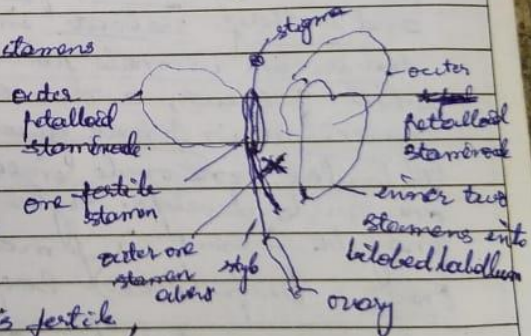 stamens
stigma
outer
petalloid
staminode.
outer
petalloid
staminode
one fertile
stamen
inner two
stamens into
bilobed labellum
outer one
stamen
style
ovary
is fertile,